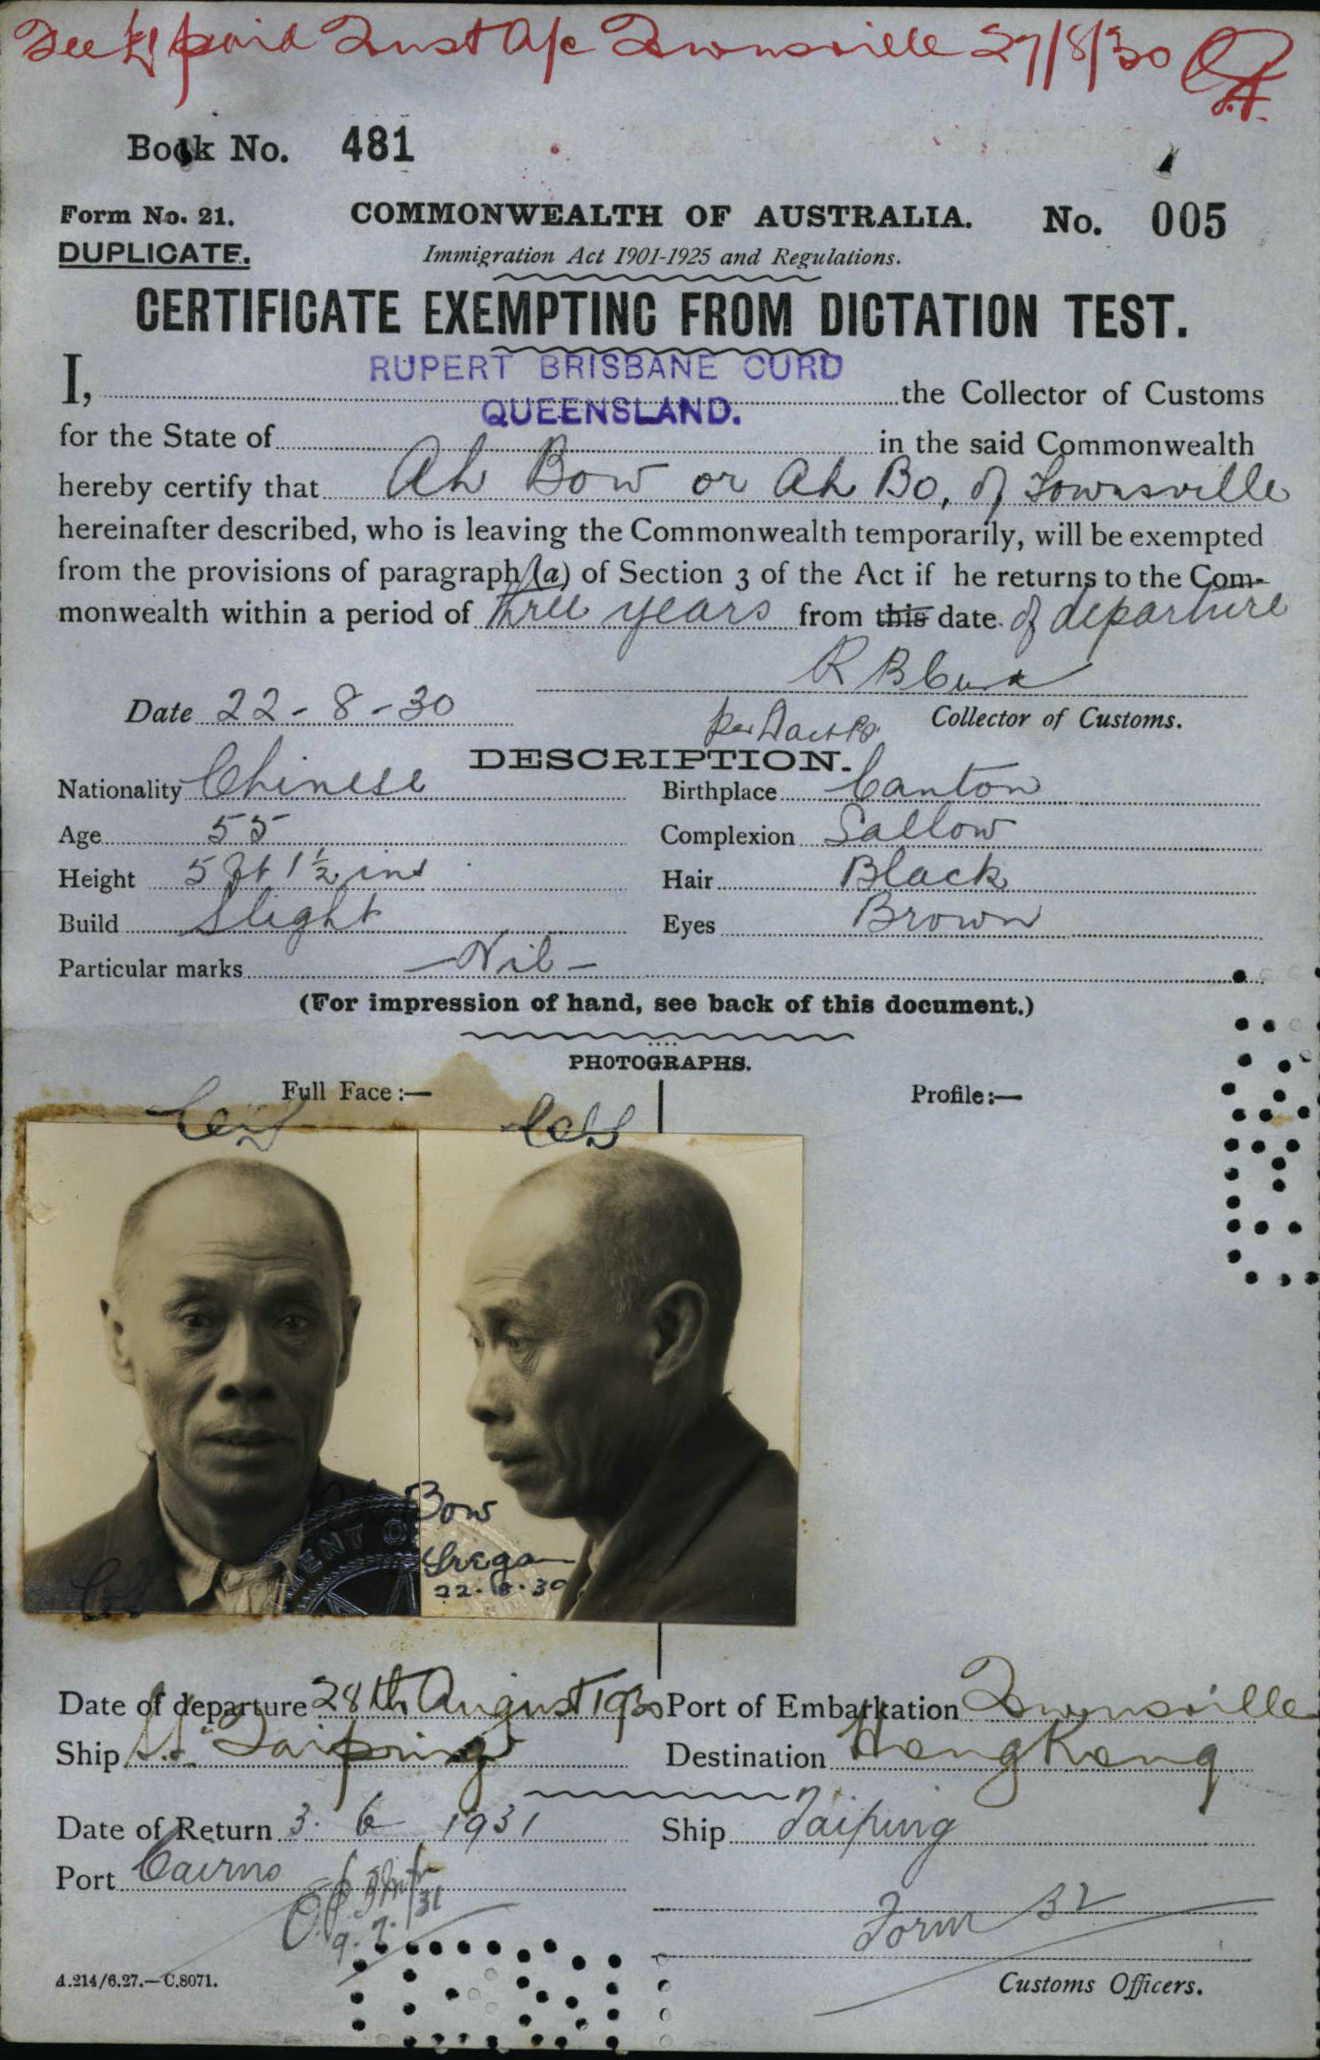 Fee £1 paid Trust A/c Townsville 27/8/30
Book No. 481
Form No. 21. COMMONWEALTH OF AUSTRALIA. No. 005
DUPLICATE. Immigration Act 1901-1925 and Regulations.
CERTIFICATE EXEMPTING FROM DICTATION TEST.
I, RUPERT BRISBANE CURD the Collector of Customs
for the State of QUEENSLAND. in the said Commonwealth
hereby certify that Ah Bow or Ah Bo, of Townsville
hereinafter described, who is leaving the Commonwealth temporarily, will be exempted
from the provisions of paragraph (a) of Section 3 of the Act if he returns to the Com-
monwealth within a period of three years from this date of departure
R B Curd
Date 22-8-30 per Collector of Customs.
DESCRIPTION.
Nationality Chinese Birthplace Canton
Age 55 Complexion Sallow
Height 5 ft 1½ ins Hair Black
Build Slight Eyes Brown
Particular marks -Nil-
(For impression of hand, see back of this document.)
PHOTOGRAPHS.
Full Face:— Profile:—
Bow
22.8.30
Date of departure 28th August 1930 Port of Embarkation Townsville
Ship S.S. "Taiping" Destination Hong Kong
Date of Return 3. 6 1931 Ship Taiping
Port Cairns
9.7.31
Form 32
A.214/6.27.—C.8071. Customs Officers.